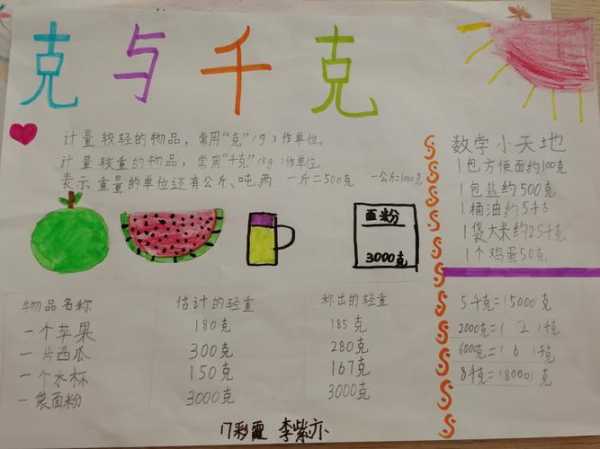 克与千克
计量较轻的物品，常用“克”（g）作单位。
计量较重的物品，常用“千克”（kg）作单位。
表示重量的单位还有公斤、吨、两 一斤=500克
面粉
3000克
物品名称 估计的轻重 称出的轻重
一个苹果 180克 185克
一片西瓜 300克 280克
一个水杯 150克 167克
一袋面粉 3000克 3000克
数学小天地
1包方便面约100克
1包盐约500克
1桶油约5千克
1袋大米约25千克
1个鸡蛋50克
5千克=(5000)克
2000克=( 2 )千克
6000克=( 6 )千克
8千克=(8000)克
17彩霞 李紫亦